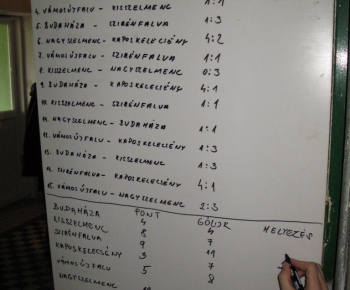 4. VÁMOSÚJFALU - KISSZELMENC 1:1
5. BUDAHÁZA - SZIRÉNFALVA 1:3
6. NAGYSZELMENC - KAPOSKELECSÉNY 4:2
7. VÁMOSÚJFALU - SZIRÉNFALVA 1:1
8. KISSZELMENC - NAGYSZELMENC 0:3
9. BUDAHÁZA - KAPOSKELECSÉNY 4:1
10. KISSZELMENC - SZIRÉNFALVA 1:1
11. NAGYSZELMENC - BUDAHÁZA 1:1
12. VÁMOSÚJFALU - KAPOSKELECSÉNY 1:3
13. BUDAHÁZA - KISSZELMENC 1:3
14. SZIRÉNFALVA - KAPOSKELECSÉNY 4:1
15. VÁMOSÚJFALU - NAGYSZELMENC 2:3
PONT GÓLOK HELYEZÉS
BUDAHÁZA 4 4
KISSZELMENC 8 7
SZIRÉNFALVA 9 11
KAPOSKELECSÉNY 3 7
VÁMOSÚJFALU 5 8
NAGYSZELMENC